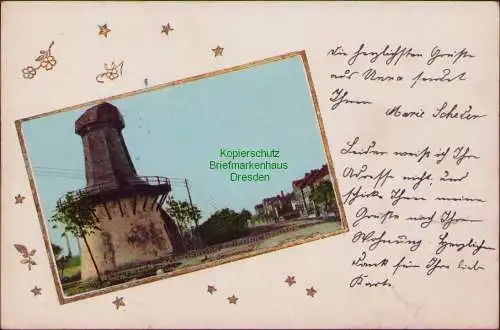 Die herzlichsten Grüße
aus Unna sendet
Ihnen
Marie Scheler
Leider weiß ich Ihre
Adresse nicht, und
schicke Ihnen meine
Grüße nach Ihrer
Wohnung. Herzlichen
Dank für Ihre liebe
Karte.
Kopierschutz
Briefmarkenhaus
Dresden